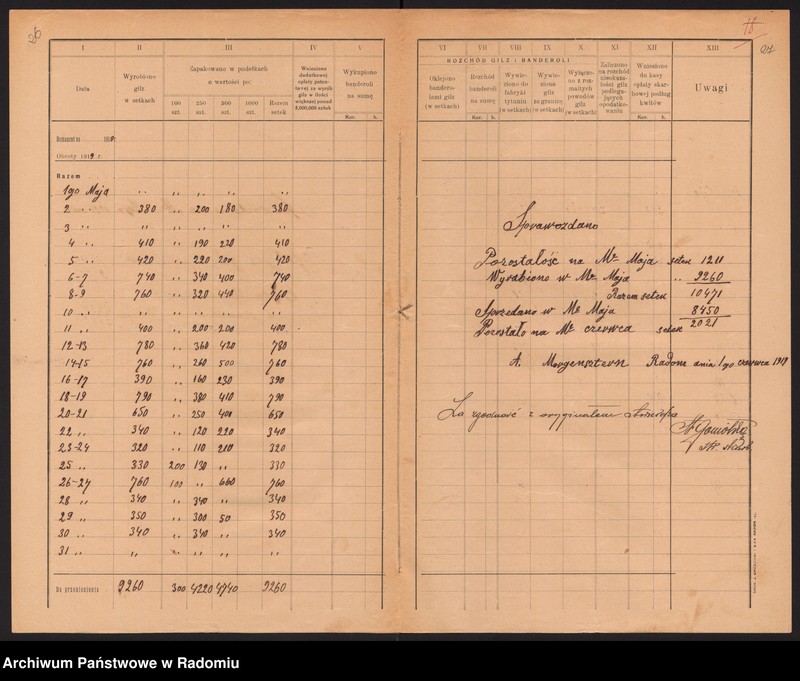 26
I II III IV V
Data
Wyrobiono gilz w setkach
Zapakowano w pudełkach o wartości po:
100 szt. 250 szt. 500 szt. 1000 szt. Razem setek
Wniesiono dodatkowej opłaty patentowej za wyrób gilz w ilości większej ponad 3,000,000 sztuk
Wykupiono banderoli na sumę
Kor. h.
Remanent na 191 r.
Obroty 1919 r.
Razem
1go Maja " " " " "
2 " 380 " 200 180 380
3 " " " " " "
4 " 410 " 190 220 410
5 " 420 " 220 200 420
6-7 740 " 340 400 740
8-9 760 " 320 440 760
10 " " " " " "
11 " 400 " 200 200 400
12-13 780 " 360 420 780
14-15 760 " 260 500 760
16-17 390 " 160 230 390
18-19 790 " 380 410 790
20-21 650 " 250 400 650
22 " 340 " 120 220 340
23-24 320 " 110 210 320
25 " 330 200 130 " 330
26-27 760 100 " 660 760
28 " 340 " 340 " 340
29 " 350 " 300 50 350
30 " 340 " 340 " 340
31 " " " " " "
Do przeniesienia 9260 300 4220 4740 9260
18
27
VI VII VIII IX X XI XII XIII
ROZCHÓD GILZ I BANDEROLI
Oklejono banderolami gilz (w setkach)
Rozchód banderoli na sumę
Wywieziono do fabryki tytuniu (w setkach)
Wywieziono gilz za granicę (w setkach)
Wyłączono z rozmaitych powodów gilz (w setkach)
Zaliczono na rozchód
gilz podlegających opodatkowaniu
Wniesiono do kasy opłaty skarbowej podług kwitów
Uwagi
Kor. h. Kor. h.
Sprawozdano
Pozostałość na Mc Maja setek 1211
Wyrabiono w Mc Maja " 9260
Razem setek 10471
Sprzedano w Mc Maja 8450
Pozostało na Mc czerwca setek 2021
A. Morgensztern Radom dnia 1go czerwca 1919
Za zgodność z oryginałem